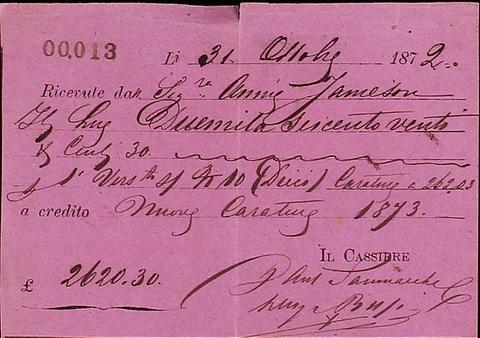 00.013 Li 31 Ottobre 1872.
Ricevute dalla Sig.ra Annie Jameson
Duemila seicento venti
& Cent 30.
p 1° Vers.to s/ N 10 (Dieci) Carature a 262.03
a credito Nuove Carature 1873.
IL CASSIERE
£ 2620.30.